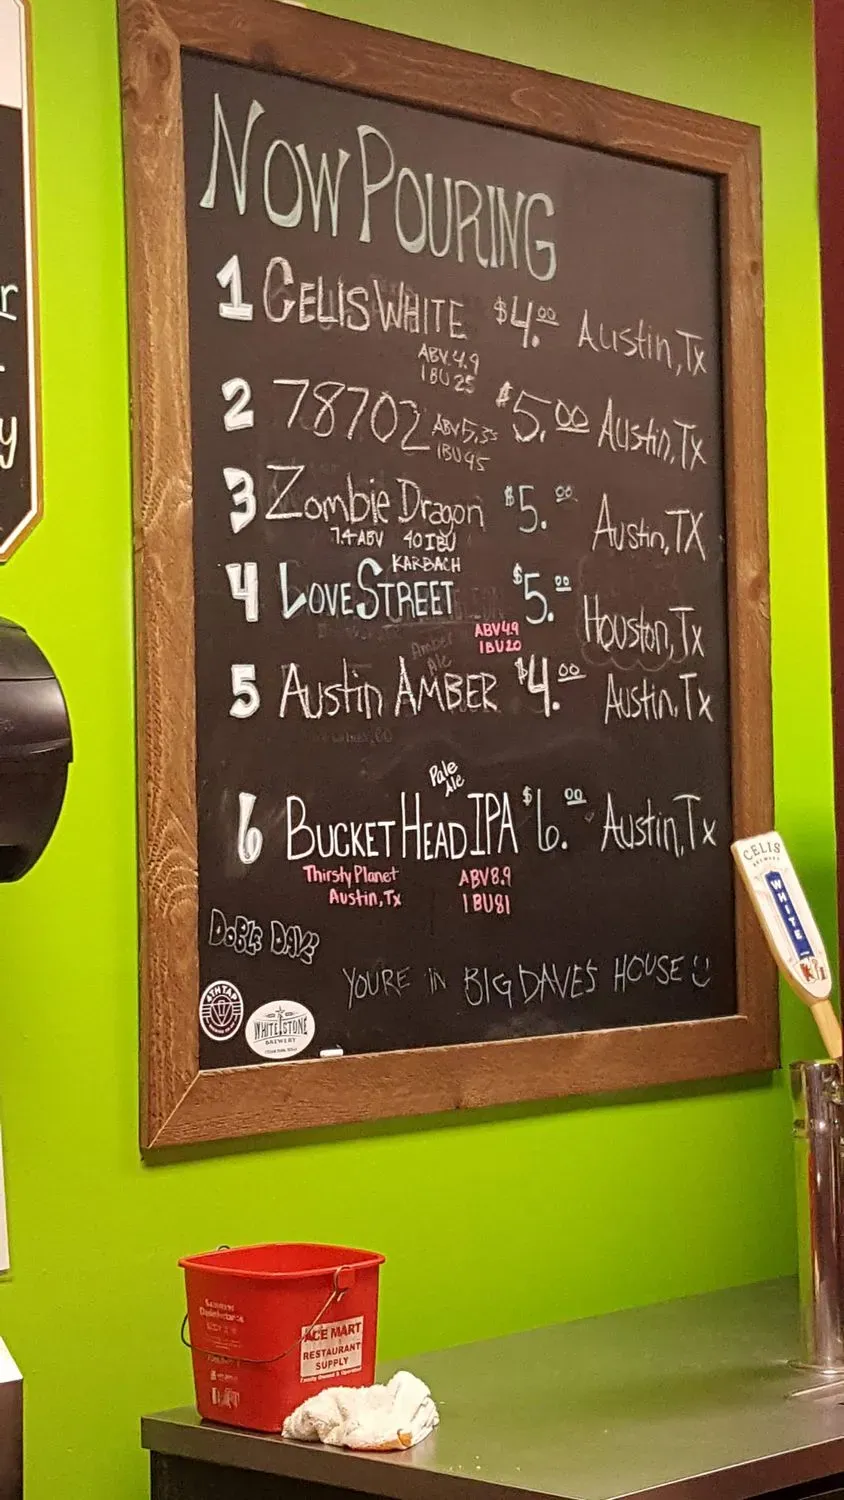 NOW POURING
1 CELIS WHITE $4.00 Austin, Tx
ABV 4.9
IBU 25
2 78702 $5.00 Austin, Tx
ABV 5.35
IBU 45
3 Zombie Dragon $5.00 Austin, TX
7.4 ABV 40 IBU
KARBACH
4 LOVE STREET $5.00 Houston, Tx
ABV 4.9
IBU 20
Amber
Ale
5 Austin AMBER $4.00 Austin, Tx
Pale
Ale
6 BUCKET HEAD IPA $6.00 Austin, Tx
Thirsty Planet
Austin, Tx
ABV 8.9
IBU 81
DOBLE DAVE
YOURE IN BIG DAVE'S HOUSE
4TH TAP
WHITESTONE
BREWERY
CELIS
BREWERY
WHITE
r
y
ACE MART
RESTAURANT
SUPPLY
Family Owned & Operated